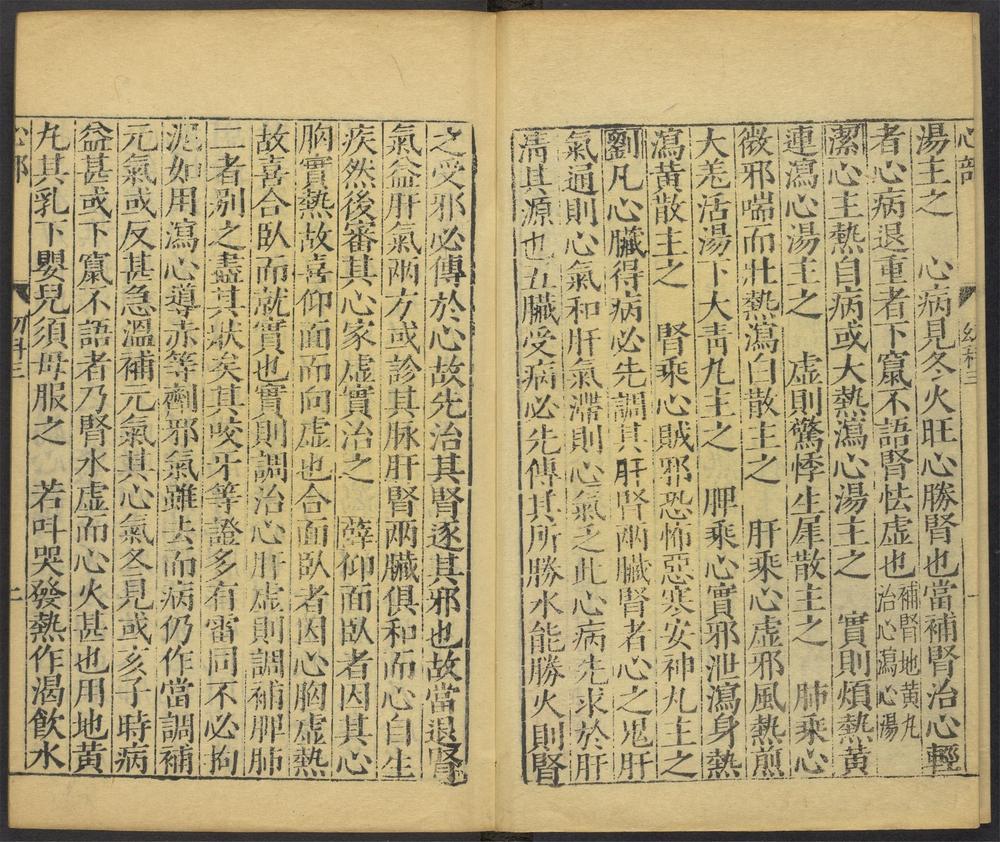 心部
幼科三
湯主之　心病見冬火旺心勝腎也當補腎治心輕
者心病退重者下竄不語腎怯虛也補腎地黃丸治心瀉心湯
潔心主熱自病或大熱瀉心湯主之　實則煩熱黃
連瀉心湯主之　虛則驚悸生犀散主之　肺乘心
微邪喘而壯熱瀉白散主之　肝乘心虛邪風熱煎
大羌活湯下大青丸主之　脾乘心實邪泄瀉身熱
瀉黃散主之　腎乘心賊邪恐怖惡寒安神丸主之
劉凡心臟得病必先調其肝腎兩臟腎者心之鬼肝
氣通則心氣和肝氣滯則心氣乏此心病先求於肝
清其源也五臟受病必先傳其所勝水能勝火則腎
之受邪必傳於心故先治其腎逐其邪也故當退腎
氣益肝氣兩方或診其脉肝腎兩臟俱和而心自生
疾然後審其心家虛實治之　薛仰面臥者因其心
胸實熱故喜仰面而向虛也合面臥者因心胸虛熱
故喜合臥而就實也實則調治心肝虛則調補脾肺
二者別之盡其狀矣其咬牙等證多有雷同不必拘
泥如用瀉心導赤等劑邪氣雖去而病仍作當調補
元氣或反甚急溫補元氣其心氣冬見或亥子時病
益甚或下竄不語者乃腎水虛而心火甚也用地黃
丸其乳下嬰兒須母服之　若呌哭發熱作渴飲水
心部
幼科三